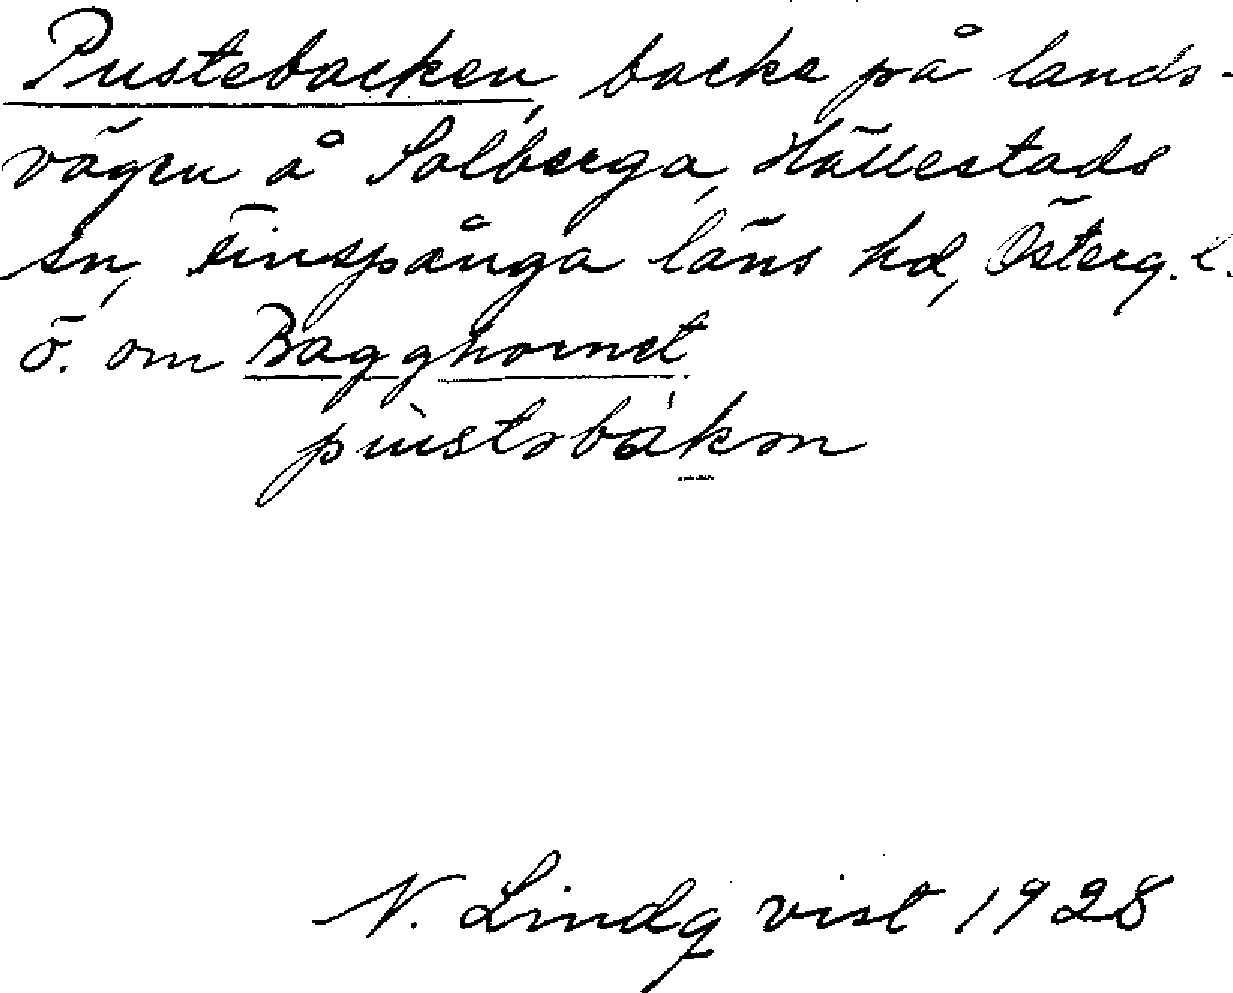 Pustebacken, backe på lands-
vägen å Solberga, Hällestads
sn, Finspånga läns hd, Österg. l.
ö. om Bagghornet
N. Lindqvist 1928